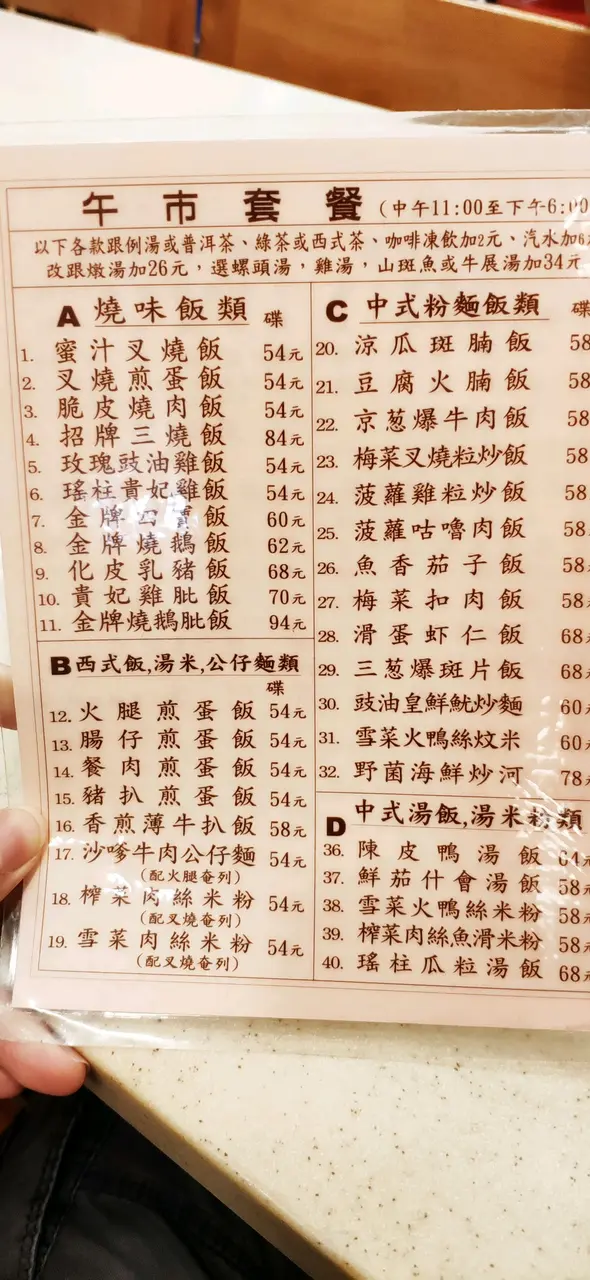 午市套餐 (中午11:00至下午6:00
以下各款跟例湯或普洱茶、綠茶或西式茶、咖啡凍飲加2元、汽水加6
改跟燉湯加26元，選螺頭湯，雞湯，山斑魚或牛展湯加34元
A 燒味飯類 碟
1. 蜜汁叉燒飯 54元
2. 叉燒煎蛋飯 54元
3. 脆皮燒肉飯 54元
4. 招牌三燒飯 84元
5. 玫瑰豉油雞飯 54元
6. 瑤柱貴妃雞飯 54元
7. 金牌 飯 60元
8. 金牌燒鵝飯 62元
9. 化皮乳豬飯 68元
10. 貴妃雞肶飯 70元
11. 金牌燒鵝肶飯 94元
B 西式飯,湯米,公仔麵類
碟
12. 火腿煎蛋飯 54元
13. 腸仔煎蛋飯 54元
14. 餐肉煎蛋飯 54元
15. 豬扒煎蛋飯 54元
16. 香煎薄牛扒飯 58元
17. 沙嗲牛肉公仔麵 54元
(配火腿奄列)
18. 榨菜肉絲米粉 54元
(配叉燒奄列)
19. 雪菜肉絲米粉 54元
(配叉燒奄列)
C 中式粉麵飯類 碟
20. 涼瓜斑腩飯 58
21. 豆腐火腩飯 58
22. 京葱爆牛肉飯 58
23. 梅菜叉燒粒炒飯 58
24. 菠蘿雞粒炒飯 58
25. 菠蘿咕嚕肉飯 58
26. 魚香茄子飯 58
27. 梅菜扣肉飯 58
28. 滑蛋虾仁飯 68
29. 三葱爆斑片飯 68
30. 豉油皇鮮魷炒麵 60
31. 雪菜火鴨絲炆米 60
32. 野菌海鮮炒河 78
D 中式湯飯,湯米粉類
36. 陳皮鴨湯飯 64元
37. 鮮茄什會湯飯 58元
38. 雪菜火鴨絲米粉 58元
39. 榨菜肉絲魚滑米粉 58元
40. 瑤柱瓜粒湯飯 68元